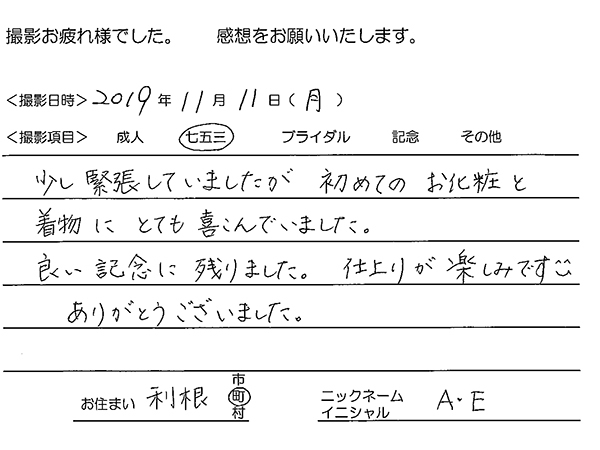 撮影お疲れ様でした。　感想をお願いいたします。
＜撮影日時＞2019年11月11日（月）
＜撮影項目＞　成人　七五三　ブライダル　記念　その他
少し緊張していましたが　初めての　お化粧と
着物に　とても喜こんでいました。
良い記念に残りました。　仕上りが楽しみです
ありがとうございました。
お住まい　利根　市町村　ニックネーム イニシャル　A・E